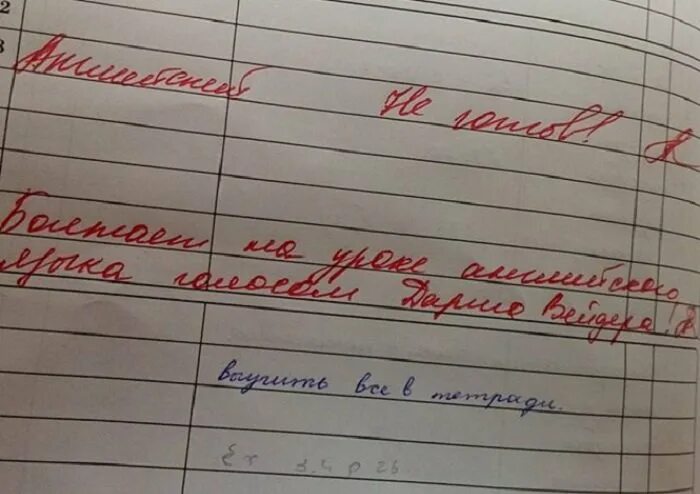 2
8
Английский Не готов!
Болтает на уроке английского
языка голосом Дарта Вейдера!
выучить все в тетради.
Ex 3.4 p 26